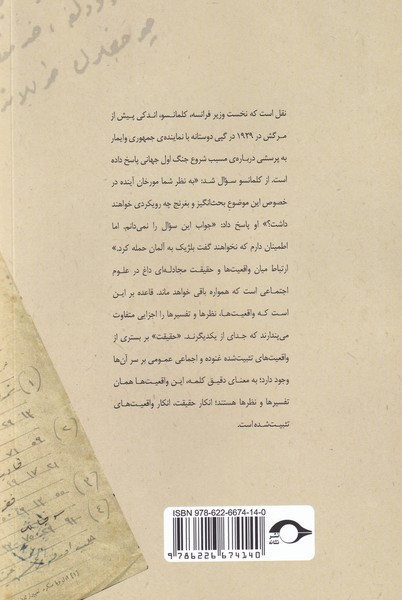 نقل است که نخست وزیر فرانسه، کلمانسو، اندکی پیش از
مرگش در ۱۹۲۹ در گپی دوستانه با نماینده‌ی جمهوری وایمار
به پرسشی درباره‌ی مسبب شروع جنگ اول جهانی پاسخ داده
است. از کلمانسو سؤال شد: «به نظر شما مورخان آینده در
خصوص این موضوع بحث‌انگیز و بغرنج چه رویکردی خواهند
داشت؟» او پاسخ داد: «جواب این سؤال را نمی‌دانم. اما
اطمینان دارم که نخواهند گفت بلژیک به آلمان حمله کرد.»
ارتباط میان واقعیت‌ها و حقیقت مجادله‌ای داغ در علوم
اجتماعی است که همواره باقی خواهد ماند. قاعده بر این
است که واقعیت‌ها، نظرها و تفسیرها را اجزایی متفاوت
می‌پندارند که جدای از یکدیگرند. «حقیقت» بر بستری از
واقعیت‌های تثبیت‌شده غنوده و اجماعی عمومی بر سر آن‌ها
وجود دارد؛ به معنای دقیق کلمه، این واقعیت‌ها همان
تفسیرها و نظرها هستند؛ انکار حقیقت، انکار واقعیت‌های
تثبیت‌شده است.
ISBN 978-622-6674-14-0
9 786226 674140